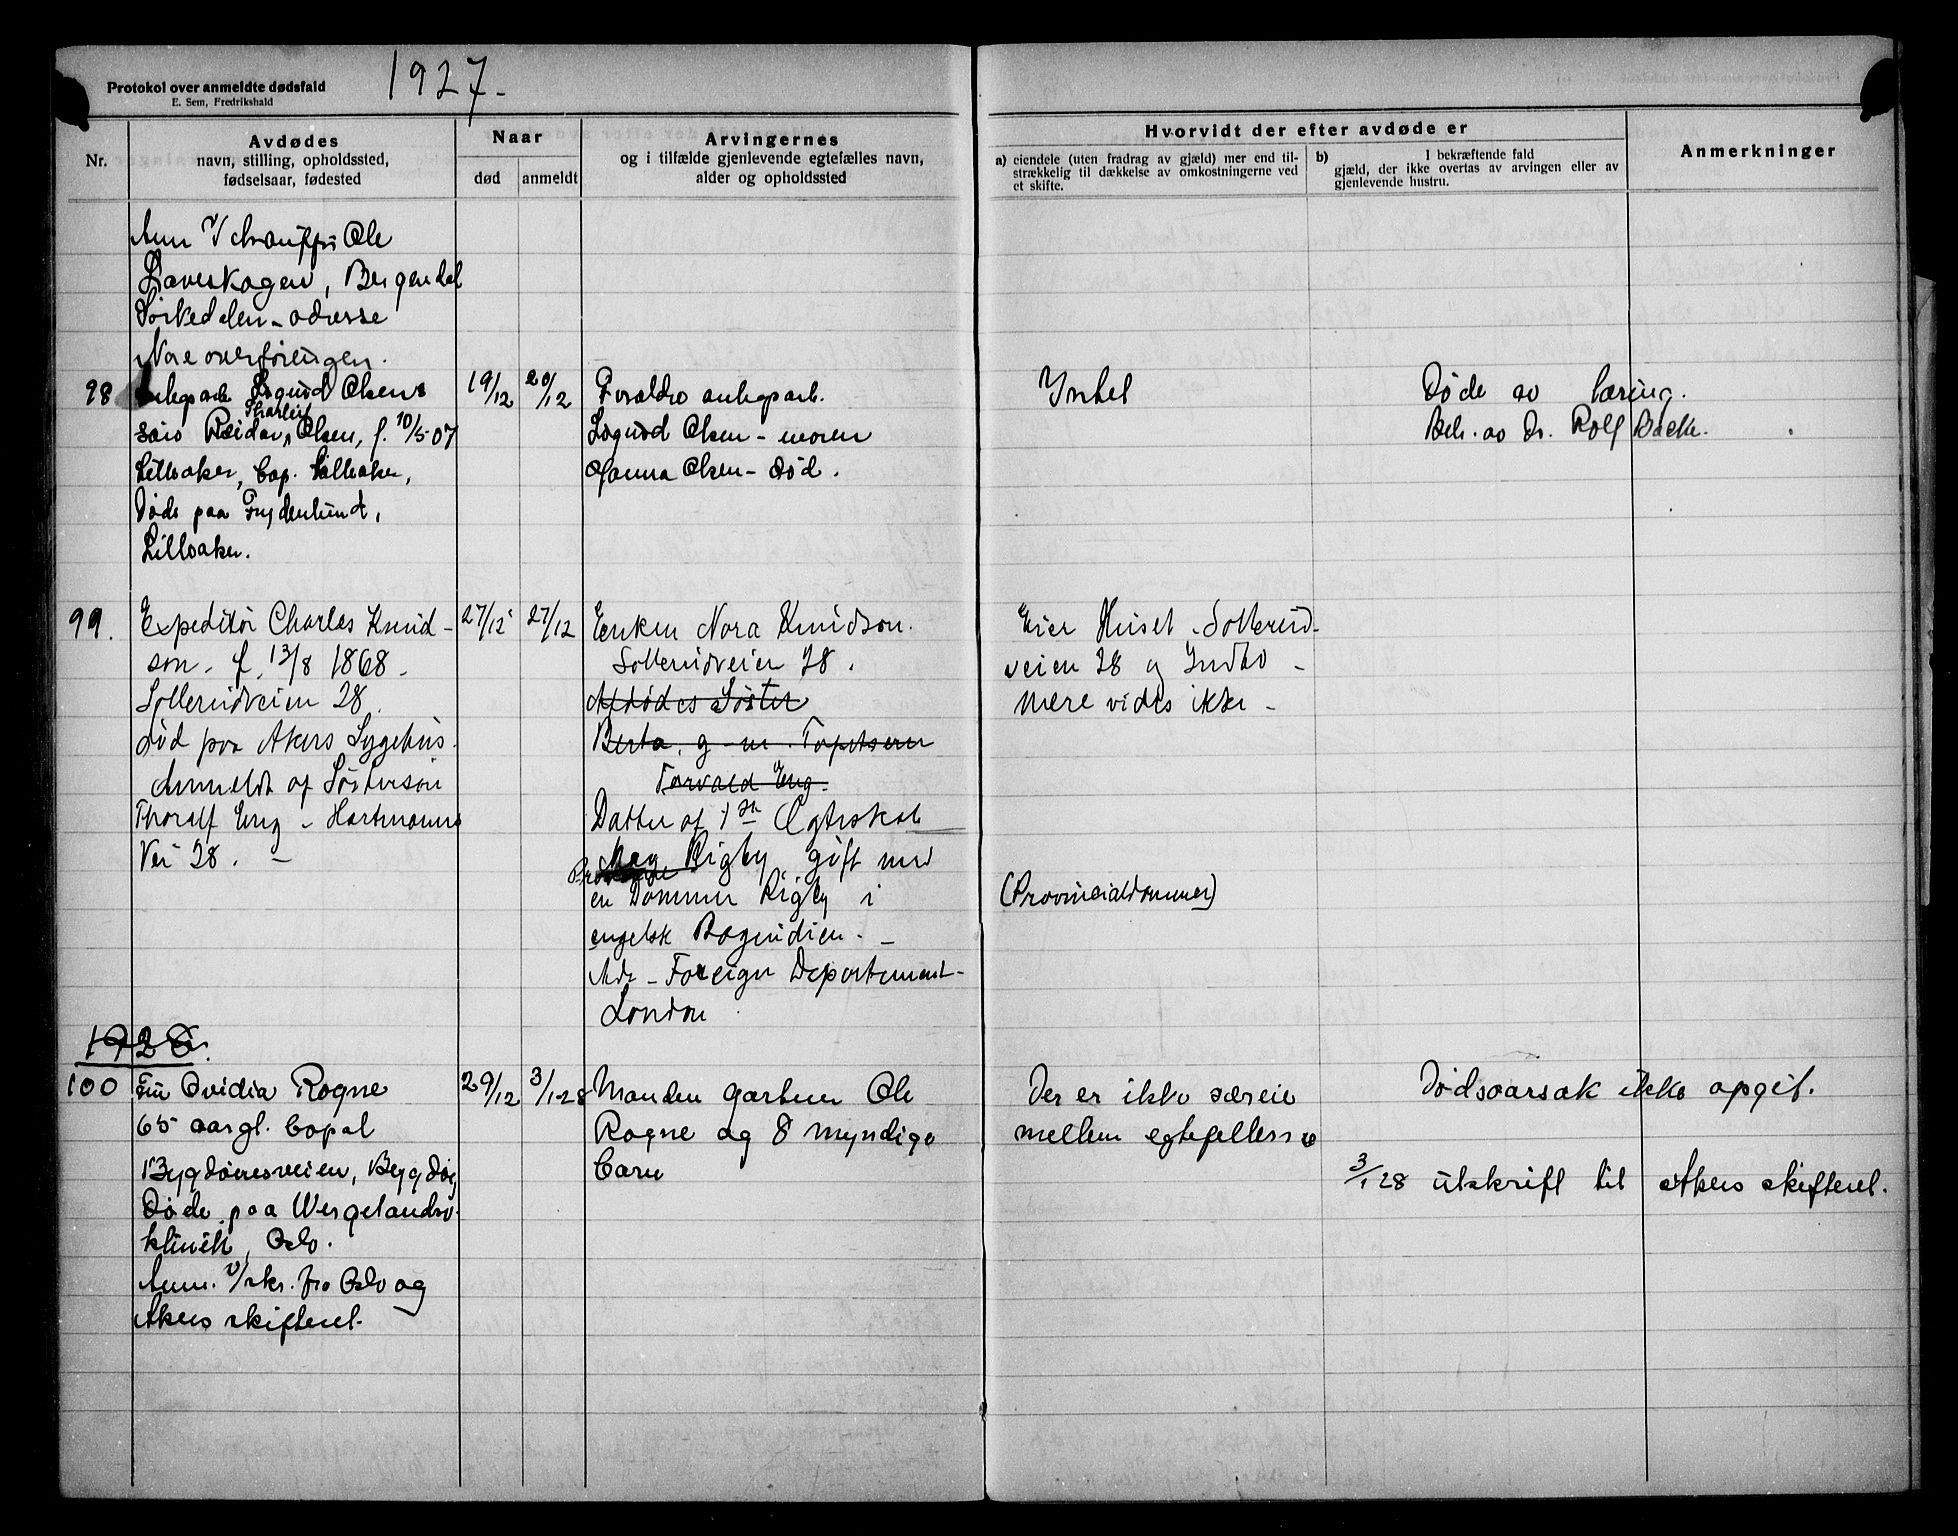 Protokol over anmeldte dødsfald
E. Sem, Fredrikshald
1927.
Nr.
Avdødes
navn, stilling, opholdssted,
fødselsaar, fødested
Naar
død
anmeldt
Arvingernes
og i tilfælde gjenlevende egtefælles navn,
alder og opholdssted
Hvorvidt der efter avdøde er
a) eiendele (uten fradrag av gjæld) mer end til-
strækkelig til dækkelse av omkostningerne ved
et skifte.
b) I bekræftende fald
gjæld, der ikke overtas av arvingen eller av
gjenlevende hustru.
Anmerkninger
Anm v/ Ole
Bergendal
Sørkedalen - adresse
98
anlegsarb. Sigurd Olsens
Thorleif
søn Reidar Olsen, f. 10/5-07
Lilleaker, Cop. Lilleaker,
Døde paa Frydenlund,
Lilleaker.
19/12
20/12
Foreldre anlegsarb.
Sigurd Olsen - moren
Hanna Olsen - død.
Intet
Døde av tæring.
Beh. av Dr. Rolf Backe.
99.
Expeditør Charles Knud-
son. f. 13/8 1868.
Sollerudveien 28.
død paa Akers Sygehus.
Anmeldt af Søstersøn
Thoralf Eng - Hartmanns
Vei 28. -
27/12
27/12
Enken Nora Knudson.
Sollerudveien 28.
Afdødes Søster
Berta, g. m. Tapetserer
Torvald Eng.
Datter af 1ste Ægteskab
May Rigby gift med
en Dommer Rigby i
engelsk Bagindien. -
Adr - Foreign Departement -
London
Eier Huset Sollerud-
veien 28 og Indbo -
mere vides ikke -
(Provincialdommer)
1928.
100
Fru Ovidia Rogne
65 aar gl. Bopal
Bygdønesveien, Bygdø,
Døde paa Wergelands
klinik, Oslo.
Anm. v/skr. fra Oslo og
Akers skifteret.
29/12
3/1-28
Manden gartner Ole
Rogne og 8 myndige
barn
Der er ikke særeie
mellem egtefellerne
Dødsaarsak ikke opgit.
3/1 28 utskrift til Akers skifteret.